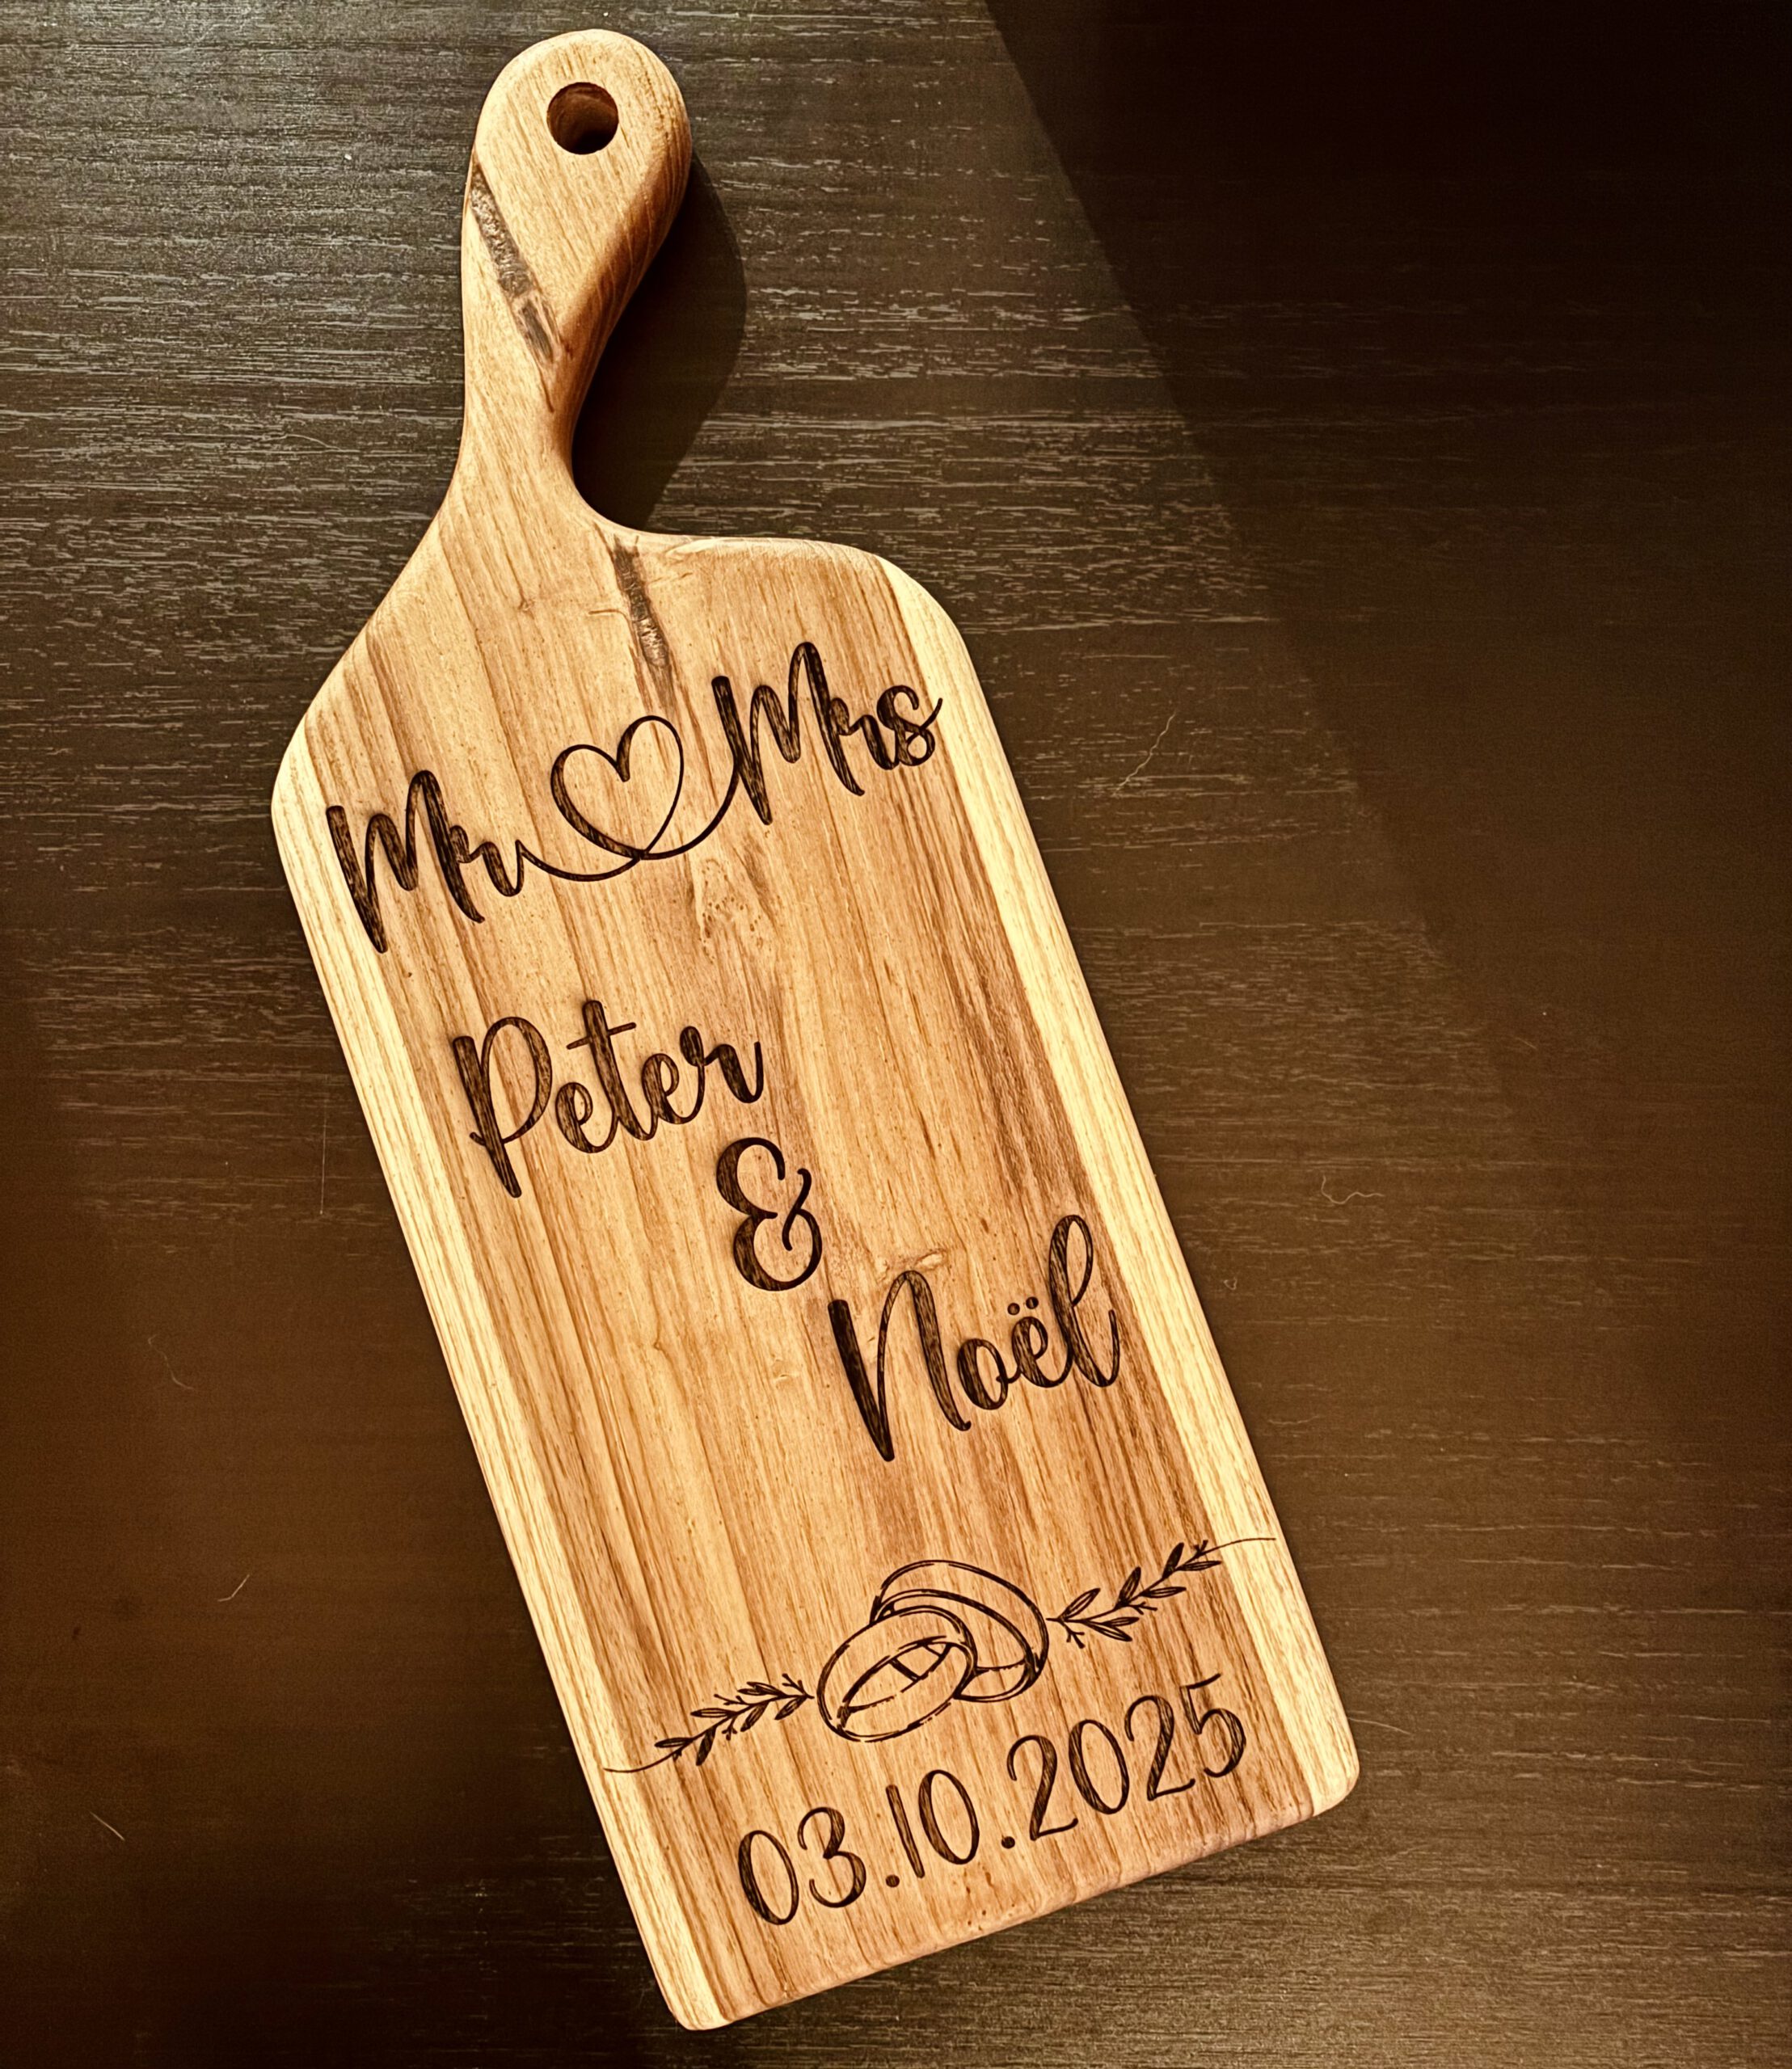 Mr Mrs
Peter
&
Noël
03.10.2025